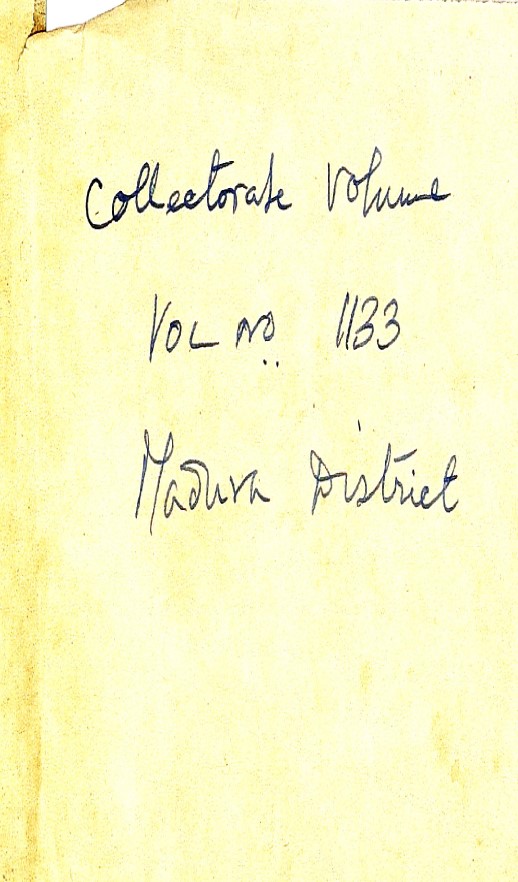 Collectorate Volume
VOL NO 1133
Madura District